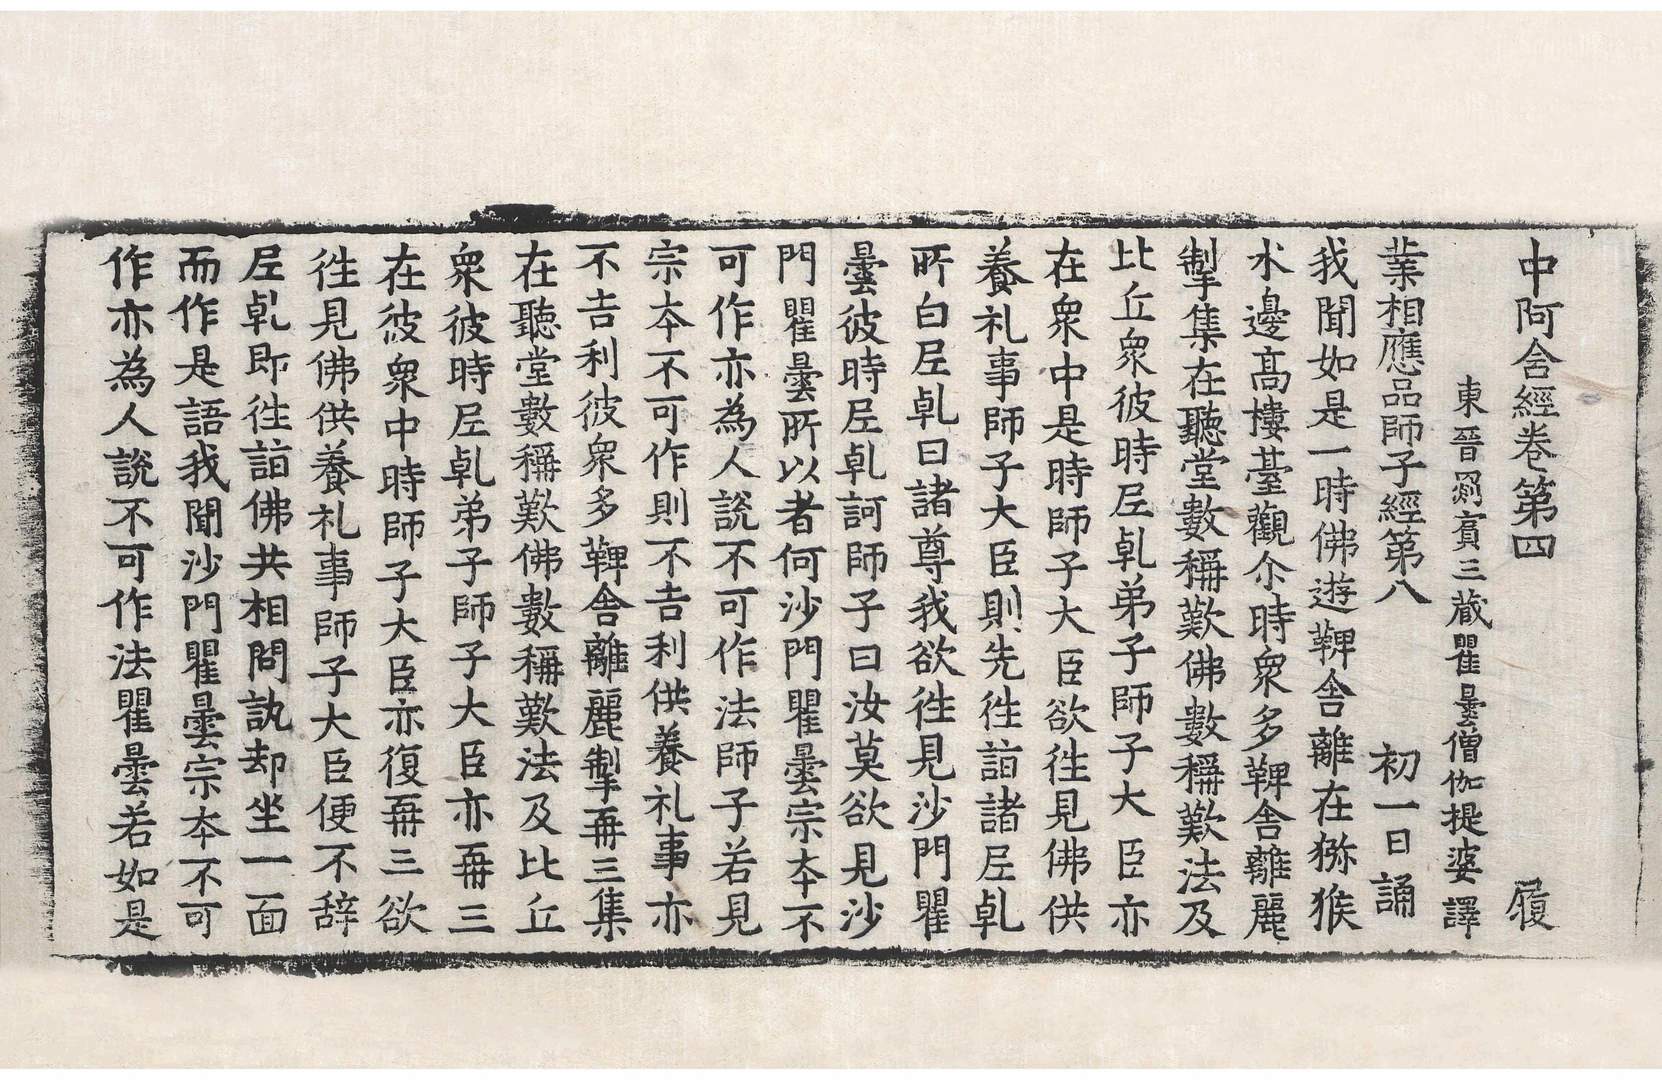 中阿含經卷第四 履
東晉罽賓三藏瞿曇僧伽提婆譯
業相應品師子經第八 初一日誦
我聞如是一時佛遊鞞舍離在猕猴
水邊高樓臺觀尒時衆多鞞舍離麗
掣集在聽堂數稱歎佛數稱歎法及
比丘衆彼時𡰱乹弟子師子大臣亦
在衆中是時師子大臣欲徃見佛供
養礼事師子大臣則先徃詣諸𡰱乹
所白𡰱乹曰諸尊我欲徃見沙門瞿
曇彼時𡰱乹訶師子曰汝莫欲見沙
門瞿曇所以者何沙門瞿曇宗夲不
可作亦為人說不可作法師子若見
宗夲不可作則不吉利供養礼事亦
不吉利彼衆多鞞舍離麗掣再三集
在聽堂數稱歎佛數稱歎法及比丘
衆彼時𡰱乹弟子師子大臣亦再三
在彼衆中時師子大臣亦復再三欲
徃見佛供養礼事師子大臣便不辞
𡰱乹即徃詣佛共相問訊却坐一面
而作是語我聞沙門瞿曇宗夲不可
作亦為人說不可作法瞿曇若如是